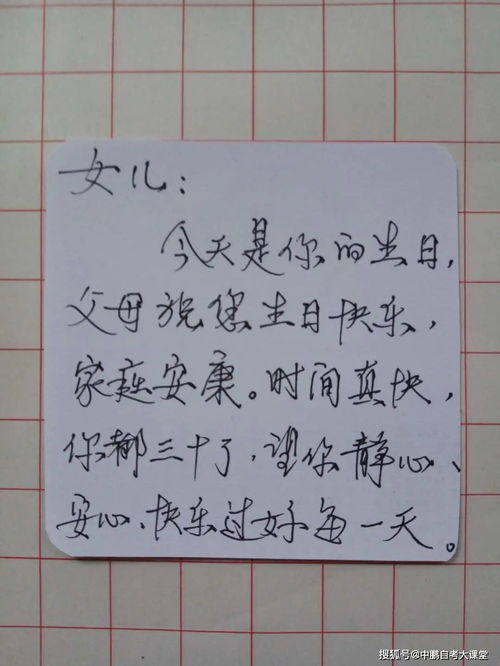 女儿：
今天是你的生日，
父母祝您生日快乐，
家庭安康。时间真快，
你都三十了，望你静心、
安心、快乐过好每一天。
搜狐号@中鹏自考大课堂